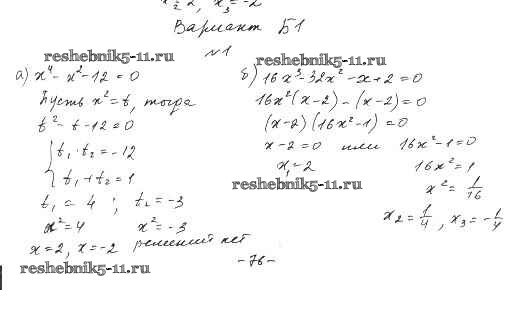 x₂ = 2, x₃ = -2
Вариант Б1
№1
reshebnik5-11.ru
а) x⁴ - x² - 12 = 0
Пусть x² = t, тогда
t² - t - 12 = 0
t₁ · t₂ = -12
t₁ + t₂ = 1
t₁ = 4 ; t₂ = -3
x² = 4 x² = -3
x = 2, x = -2 решений нет
reshebnik5-11.ru
reshebnik5-11.ru
б) 16x³ - 32x² - x + 2 = 0
16x²(x - 2) - (x - 2) = 0
(x - 2)(16x² - 1) = 0
x - 2 = 0 или 16x² - 1 = 0
x₁ = 2 16x² = 1
reshebnik5-11.ru
x² = 1/16
x₂ = 1/4, x₃ = -1/4
- 76 -